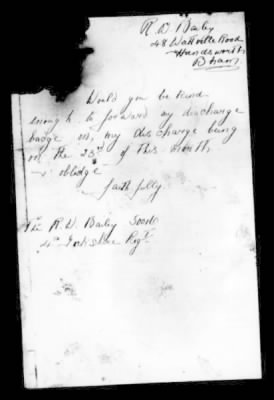 R. W. Bailey
48 Wattville Road
Handsworth
B'ham
Would you be kind
enough to forward my discharge
badge on, my discharge being
on the 23rd of this month,
oblidge
faithfully
R. W. Bailey
4th Yorkshire Regt